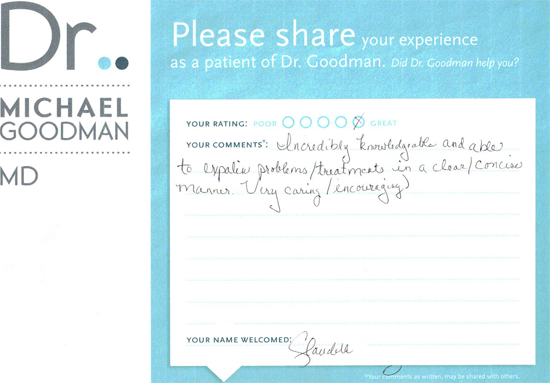 Dr..
MICHAEL
GOODMAN
MD
Please share your experience
as a patient of Dr. Goodman. Did Dr. Goodman help you?
YOUR RATING: POOR GREAT
YOUR COMMENTS*: Incredibly knowledgeable and able
to explain problems/treatments in a clear/concise
manner. Very caring/encouraging)
YOUR NAME WELCOMED:
*Your comments as written, may be shared with others.